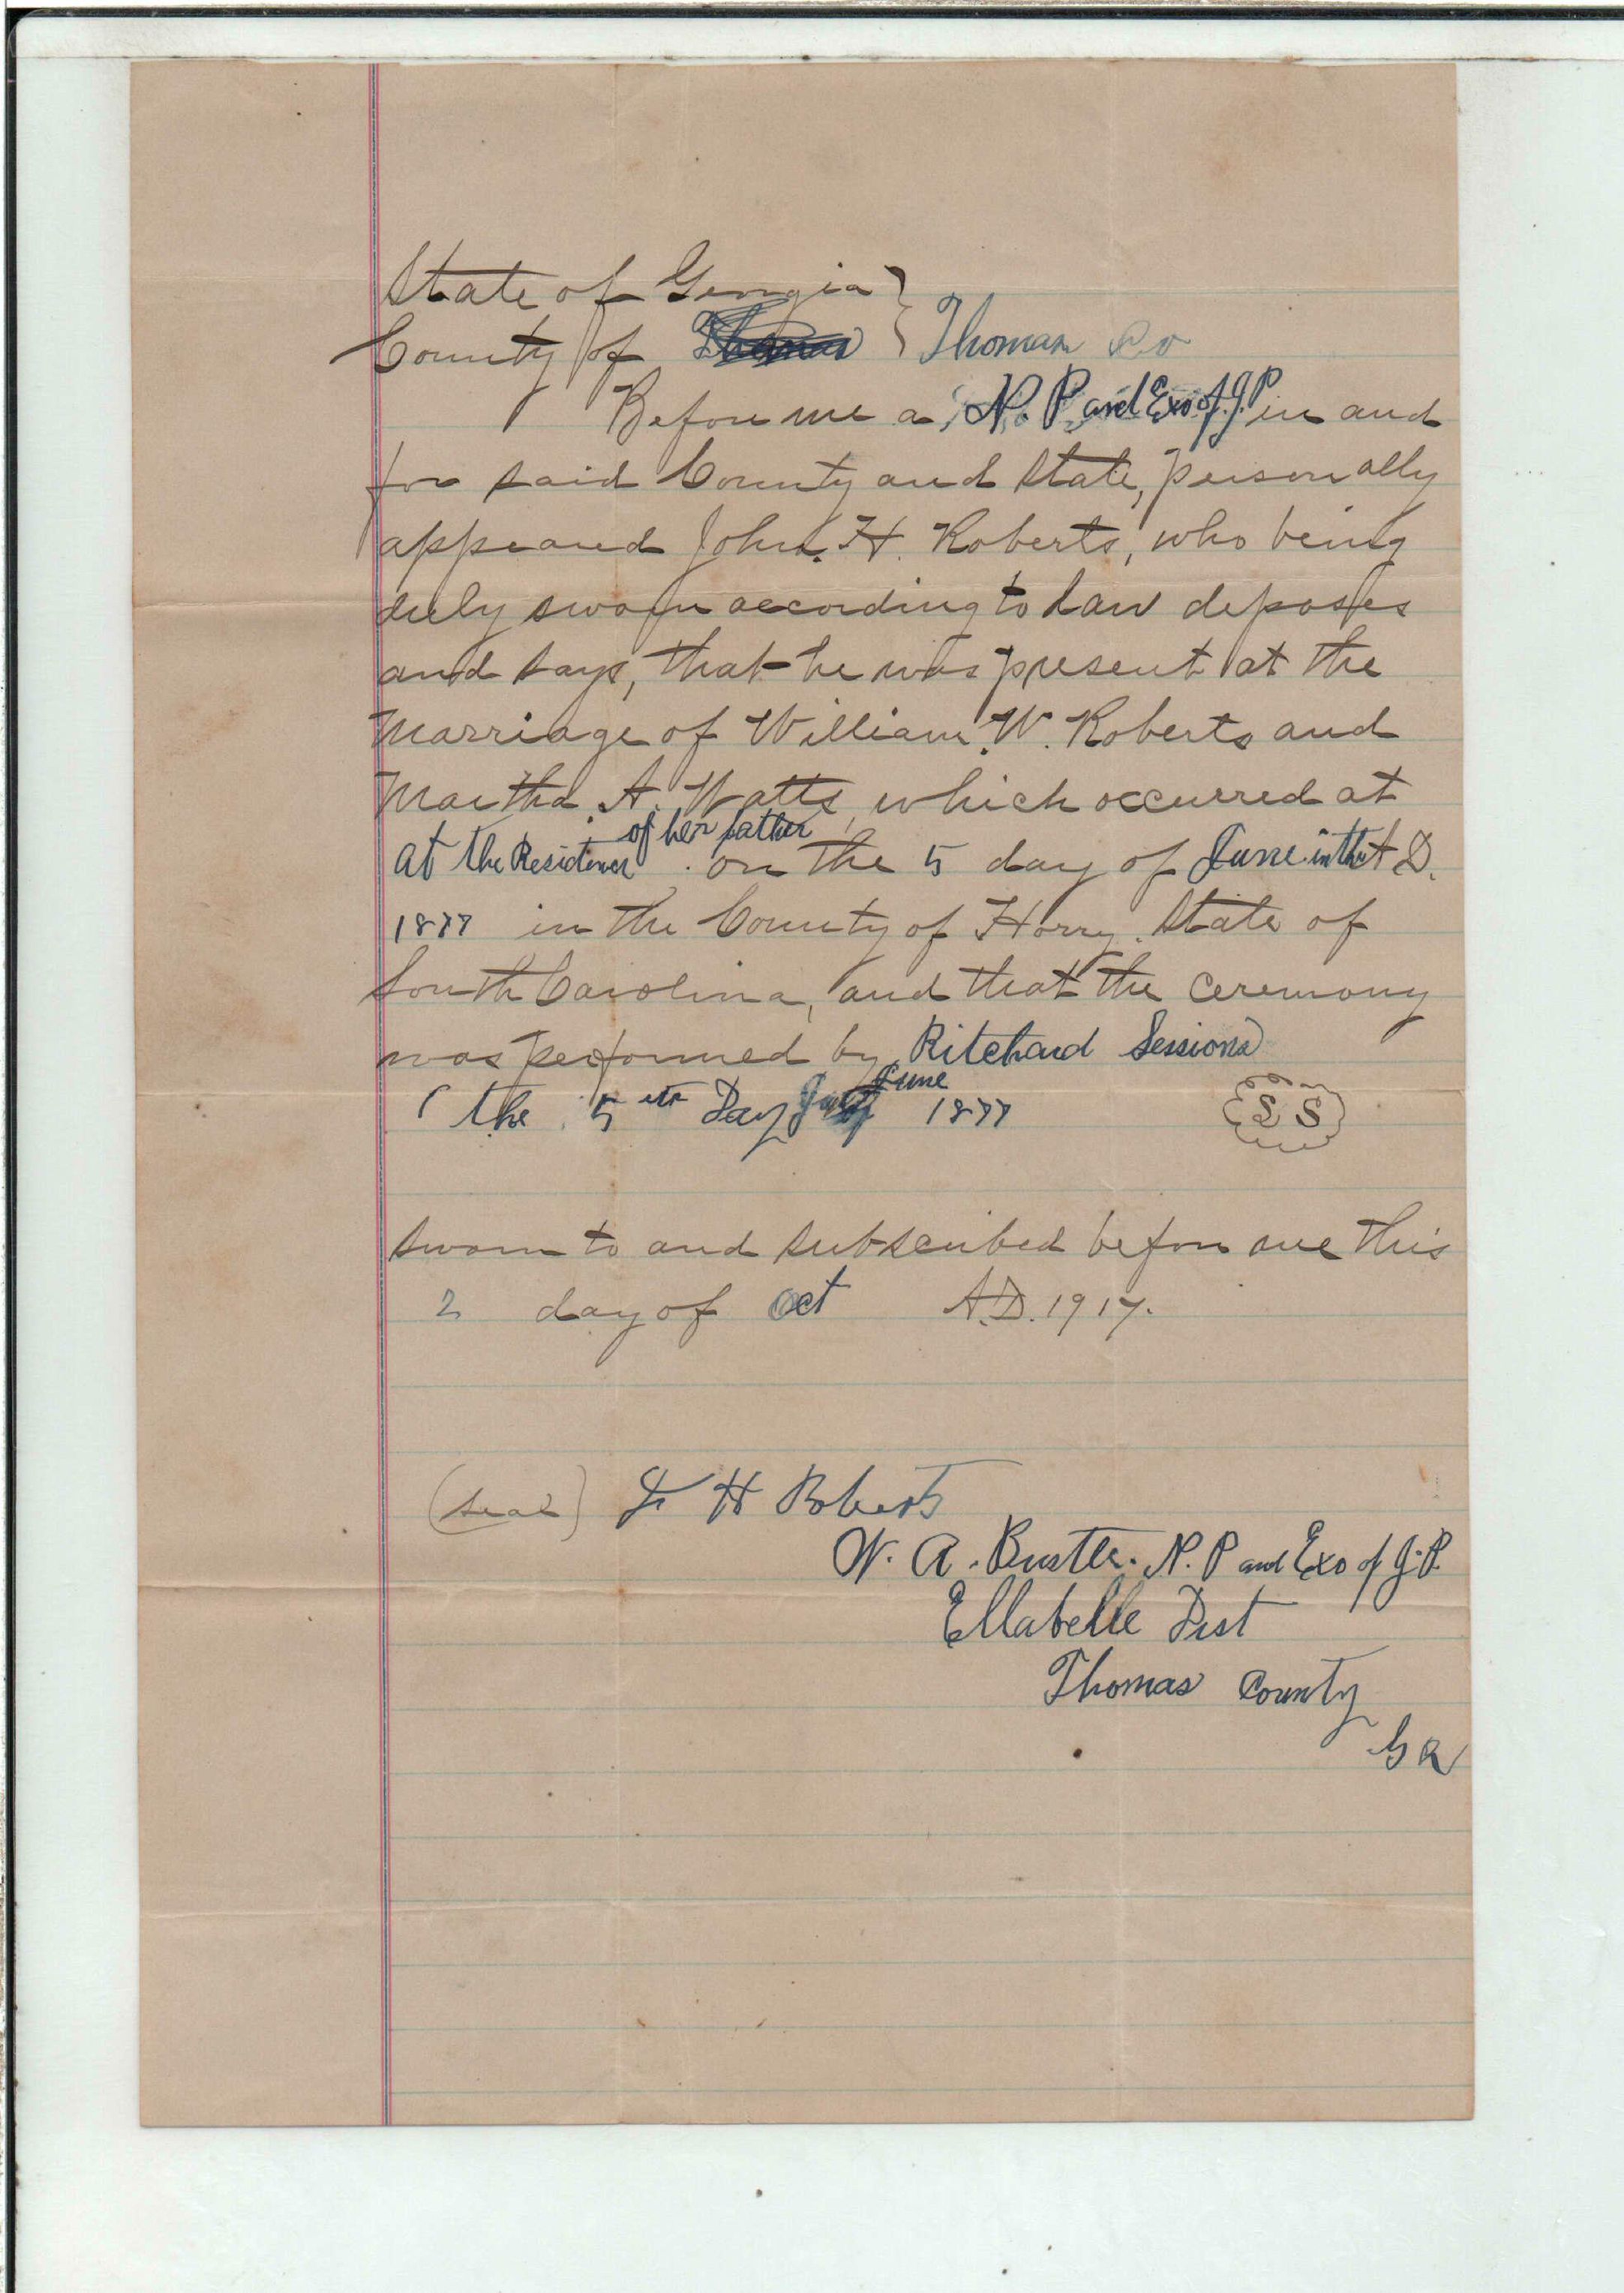 State of Georgia }
County of Thomas } Thomas Co
Before me a N. P and Exo of. J. P in and
for said County and State, personally
appeared John. H. Roberts, who being
duly sworn according to Law deposes
and says, that he was present at the
Marriage of William. W. Roberts and
Martha. A. Watts, which occurred at
of her father
at the Residence . on the 5 day of June in the A D.
1877 in the County of Horry. State of
South Carolina, and that the ceremony
was performed by Ritchard Sessions
June
( the 5 Day 1877 L S
Sworn to and subscribed before me this
2 day of Oct A.D. 1917.
(Seal) J H Roberts
W. A. N. P and Exo of J. P.
Ellabelle Dist
Thomas County
Ga